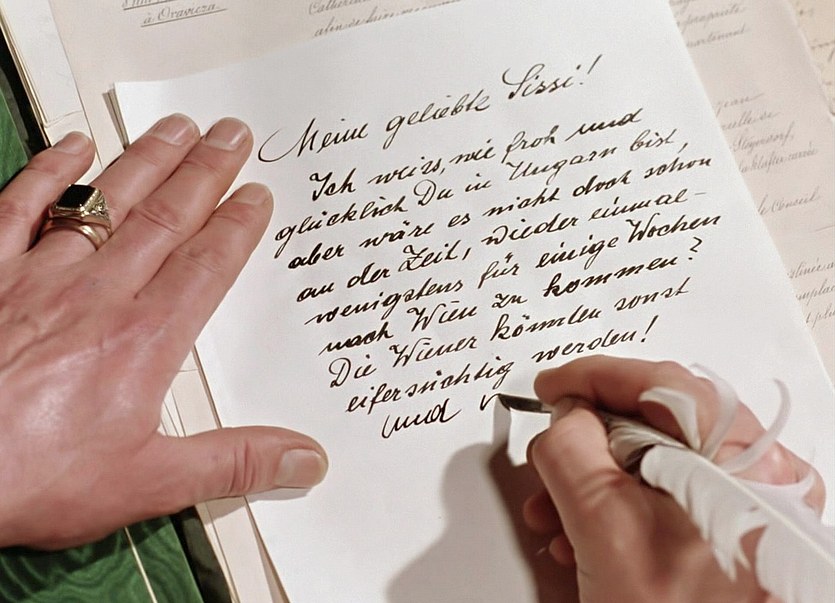 à Oravicza.
Meine geliebte Sissi!
Ich weiss, wie froh und
glücklich Du in Ungarn bist,
aber wäre es nicht doch schon
an der Zeit, wieder einmal-
wenigstens für einige Wochen
nach Wien zu kommen?
Die Wiener könnten sonst
eifersüchtig werden!
und